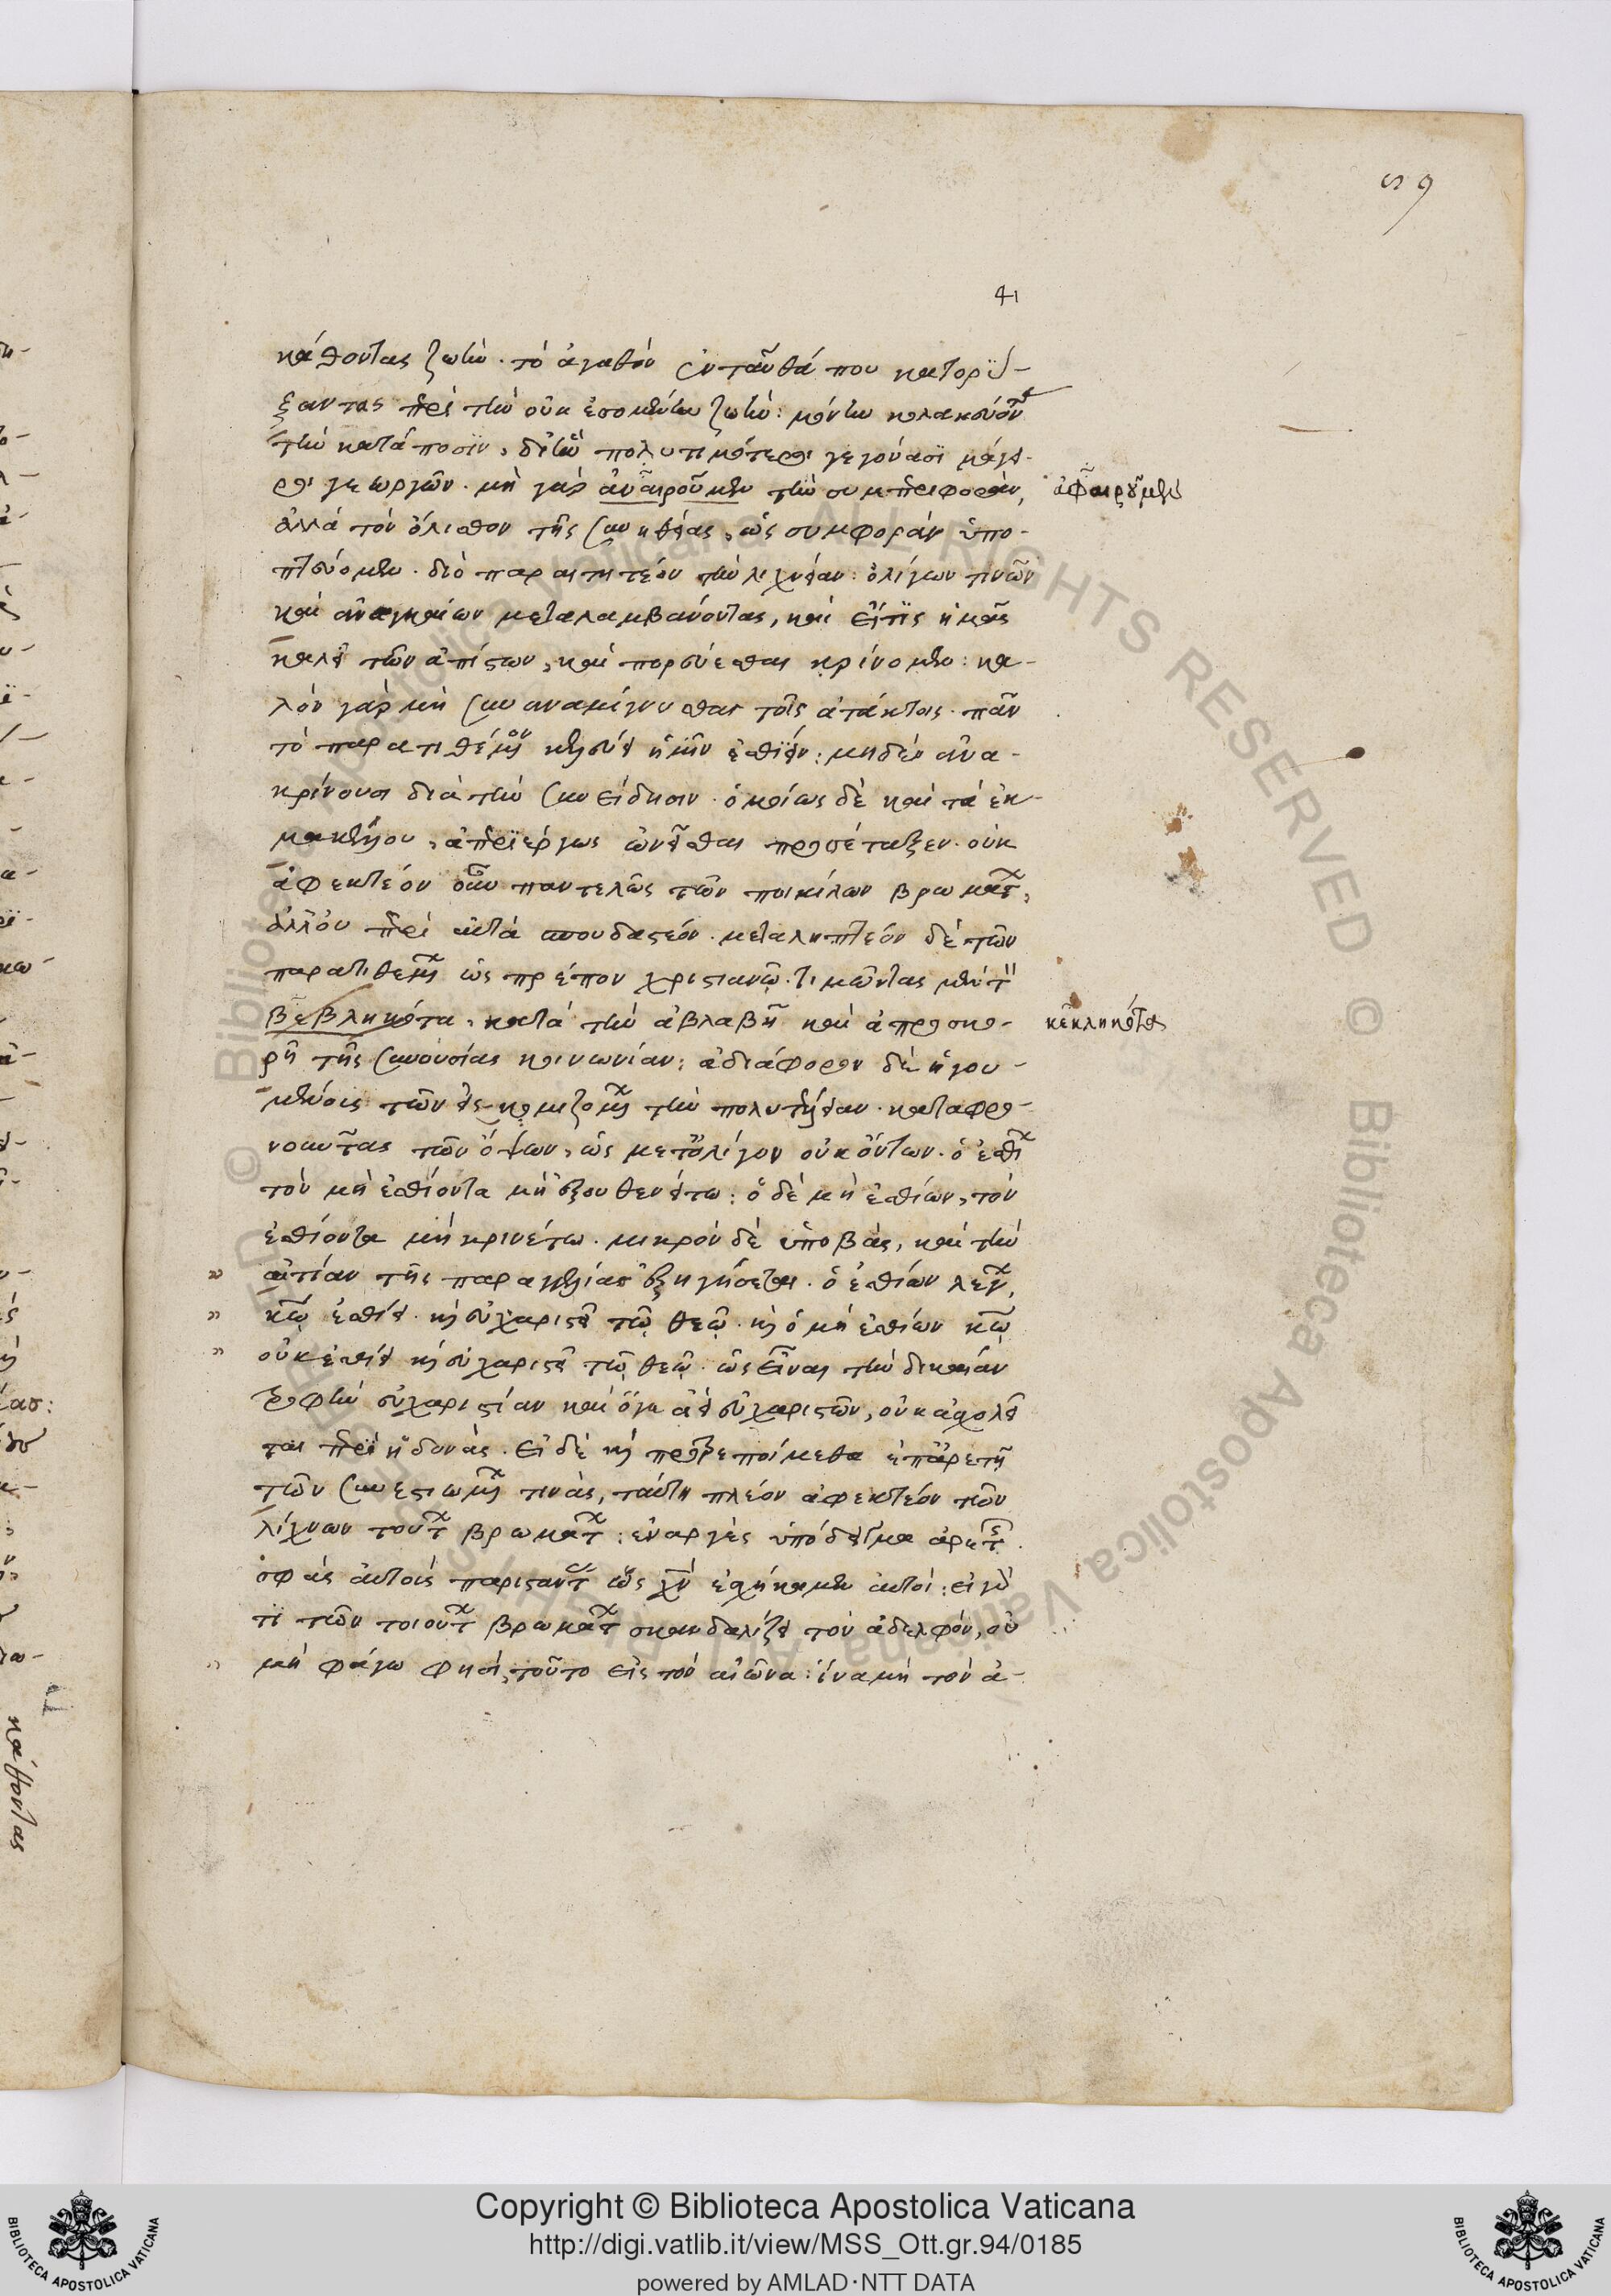 59
41
κάθοντας ζωὴν. τὸ ἀγαθὸν ἐνταῦθά που κατορύ-
ξαντας περὶ τὴν οὐκ ἐσομένην ζωὴν: μόνην κολακεύουσι
τὴν κατάποσιν, δι' ἣν πολυτιμότεροι γεγόνασι μάγει-
ροι γεωργῶν. μὴ γὰρ ἀναιρούμεν τὴν συμπεριφορὰν,
ἀφαιρούμεν
ἀλλὰ τὸν ὄλισθον τῆς συνηθείας, ὡς συμφορὰν ὑπο-
πτεύομεν. διὸ παραιτητέον τὴν λιχνείαν: ὀλίγων τινῶν
καὶ ἀναγκαίων μεταλαμβάνοντας, καὶ εἴ τις ἡμᾶς
καλεῖ τῶν ἀπίστων, καὶ πορεύεσθαι κρίνομεν: κα-
λὸν γὰρ μὴ συναναμίγνυσθαι τοῖς ἀτάκτοις. πᾶν
τὸ παρατιθέμενον κελεύει ἡμῖν ἐσθίειν: μηδὲν ἀνα-
κρίνουσι διὰ τὴν συνείδησιν. ὁμοίως δὲ καὶ τὰ ἐκ
μακέλλου, ἀπεριέργως ὠνεῖσθαι προσέταξεν. οὐκ
ἀφεκτέον οὖν παντελῶς τῶν ποικίλων βρωμάτων,
ἀλλ' οὐ περὶ αὐτὰ σπουδαστέον. μεταληπτέον δὲ τῶν
παρατιθεμένων ὡς πρέπον χριστιανῷ. τιμῶντας μὲν τὸν
βεβληκότα, κατὰ τὴν ἀβλαβῆ καὶ ἀπροσκο-
κεκληκότα
ρῆ τῆς συνουσίας κοινωνίαν: ἀδιάφορον δὲ ἡγου-
μένοις τῶν εἰσκομιζομένων τὴν πολυτέλειαν. καταφρο-
νοῦντας τῶν ὄψων, ὡς μετ' ὀλίγον οὐκ ὄντων. ὁ ἐσθίων
τὸν μὴ ἐσθίοντα μὴ ἐξουθενείτω: ὁ δὲ μὴ ἐσθίων, τὸν
ἐσθίοντα μὴ κρινέτω. μικρὸν δὲ ὑποβὰς, καὶ τὴν
αἰτίαν τῆς παραγγελίας ἐξηγήσεται. ὁ ἐσθίων λέγων,
κυρίῳ ἐσθίει. καὶ εὐχαριστεῖ τῷ θεῷ. καὶ ὁ μὴ ἐσθίων κυρίῳ
οὐκ ἐσθίει καὶ εὐχαριστεῖ τῷ θεῷ. ὡς εἶναι τὴν δικαίαν
τροφὴν εὐχαριστίαν καὶ ὅγε ἀεὶ εὐχαριστῶν, οὐκ ἀσχολεῖ
ται περὶ ἡδονάς. εἰ δὲ καὶ προτρεποίμεθα ἐπ' ἀρετῇ
τῶν συνεστιωμένων τινάς, ταύτῃ πλέον ἀφεκτέον τῶν
λίχνων τούτων βρωμάτων: ἐναργὲς ὑπόδειγμα ἀρετῆς
σφᾶς αὐτοὺς παριστάντας ὡς χριστὸν ἐσχήκαμεν αὐτοί: εἰ γάρ
τι τῶν τοιούτων βρωμάτων σκανδαλίζει τὸν ἀδελφόν, οὐ
μὴ φάγω φησὶ, τοῦτο εἰς τὸν αἰῶνα: ἵνα μὴ τὸν ἀ-
κάθοντας
Copyright © Biblioteca Apostolica Vaticana
http://digi.vatlib.it/view/MSS_Ott.gr.94/0185
powered by AMLAD·NTT DATA